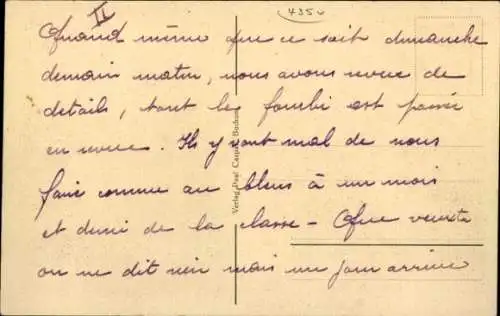 II
4350
Quand même que ce soit dimanche
demain matin, nous avons revue de
details, tout le fourbi est passé
en revue. Ils y vont mal de nous
faire comme au bleus à un mois
et demi de la classe - Que veux tu
on ne dit rien mais un jour arrive
Verlag Paul Bochum